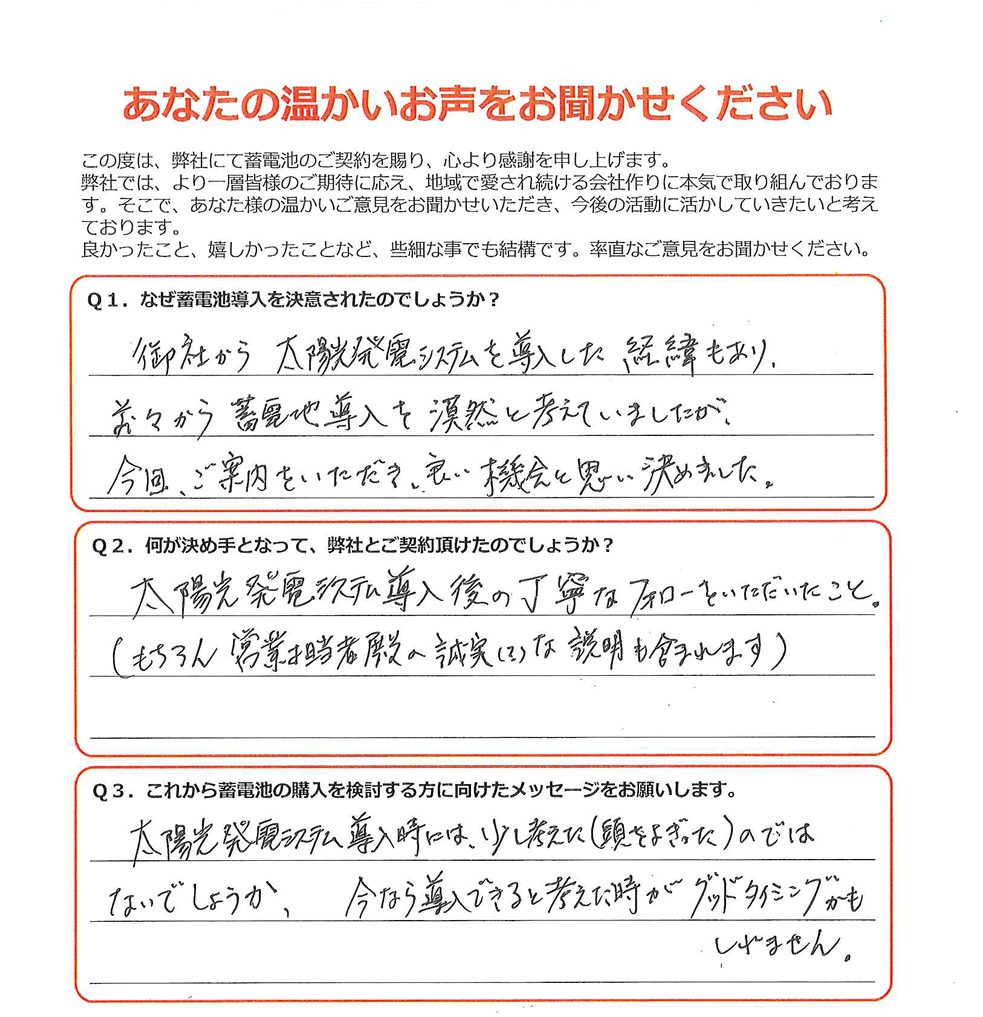 あなたの温かいお声をお聞かせください
この度は、弊社にて蓄電池のご契約を賜り、心より感謝を申し上げます。
弊社では、より一層皆様のご期待に応え、地域で愛され続ける会社作りに本気で取り組んでおりま
す。そこで、あなた様の温かいご意見をお聞かせいただき、今後の活動に活かしていきたいと考え
ております。
良かったこと、嬉しかったことなど、些細な事でも結構です。率直なご意見をお聞かせください。
Q１．なぜ蓄電池導入を決意されたのでしょうか？
御社から 太陽光発電システムを導入した 経緯もあり、
前々から 蓄電池導入を 漠然と考えていましたが、
今回、ご案内をいただき、良い機会と思い決めました。
Q２．何が決め手となって、弊社とご契約頂けたのでしょうか？
太陽光発電システム導入後の丁寧なフォローをいただいたこと。
(もちろん 営業担当者殿の誠実な 説明も含まれます)
Q３．これから蓄電池の購入を検討する方に向けたメッセージをお願いします。
太陽光発電システム導入時には、少し考えた(頭をよぎった)のでは
ないでしょうか、 今なら導入できると考えた時が グッドタイミングかも
しれません。